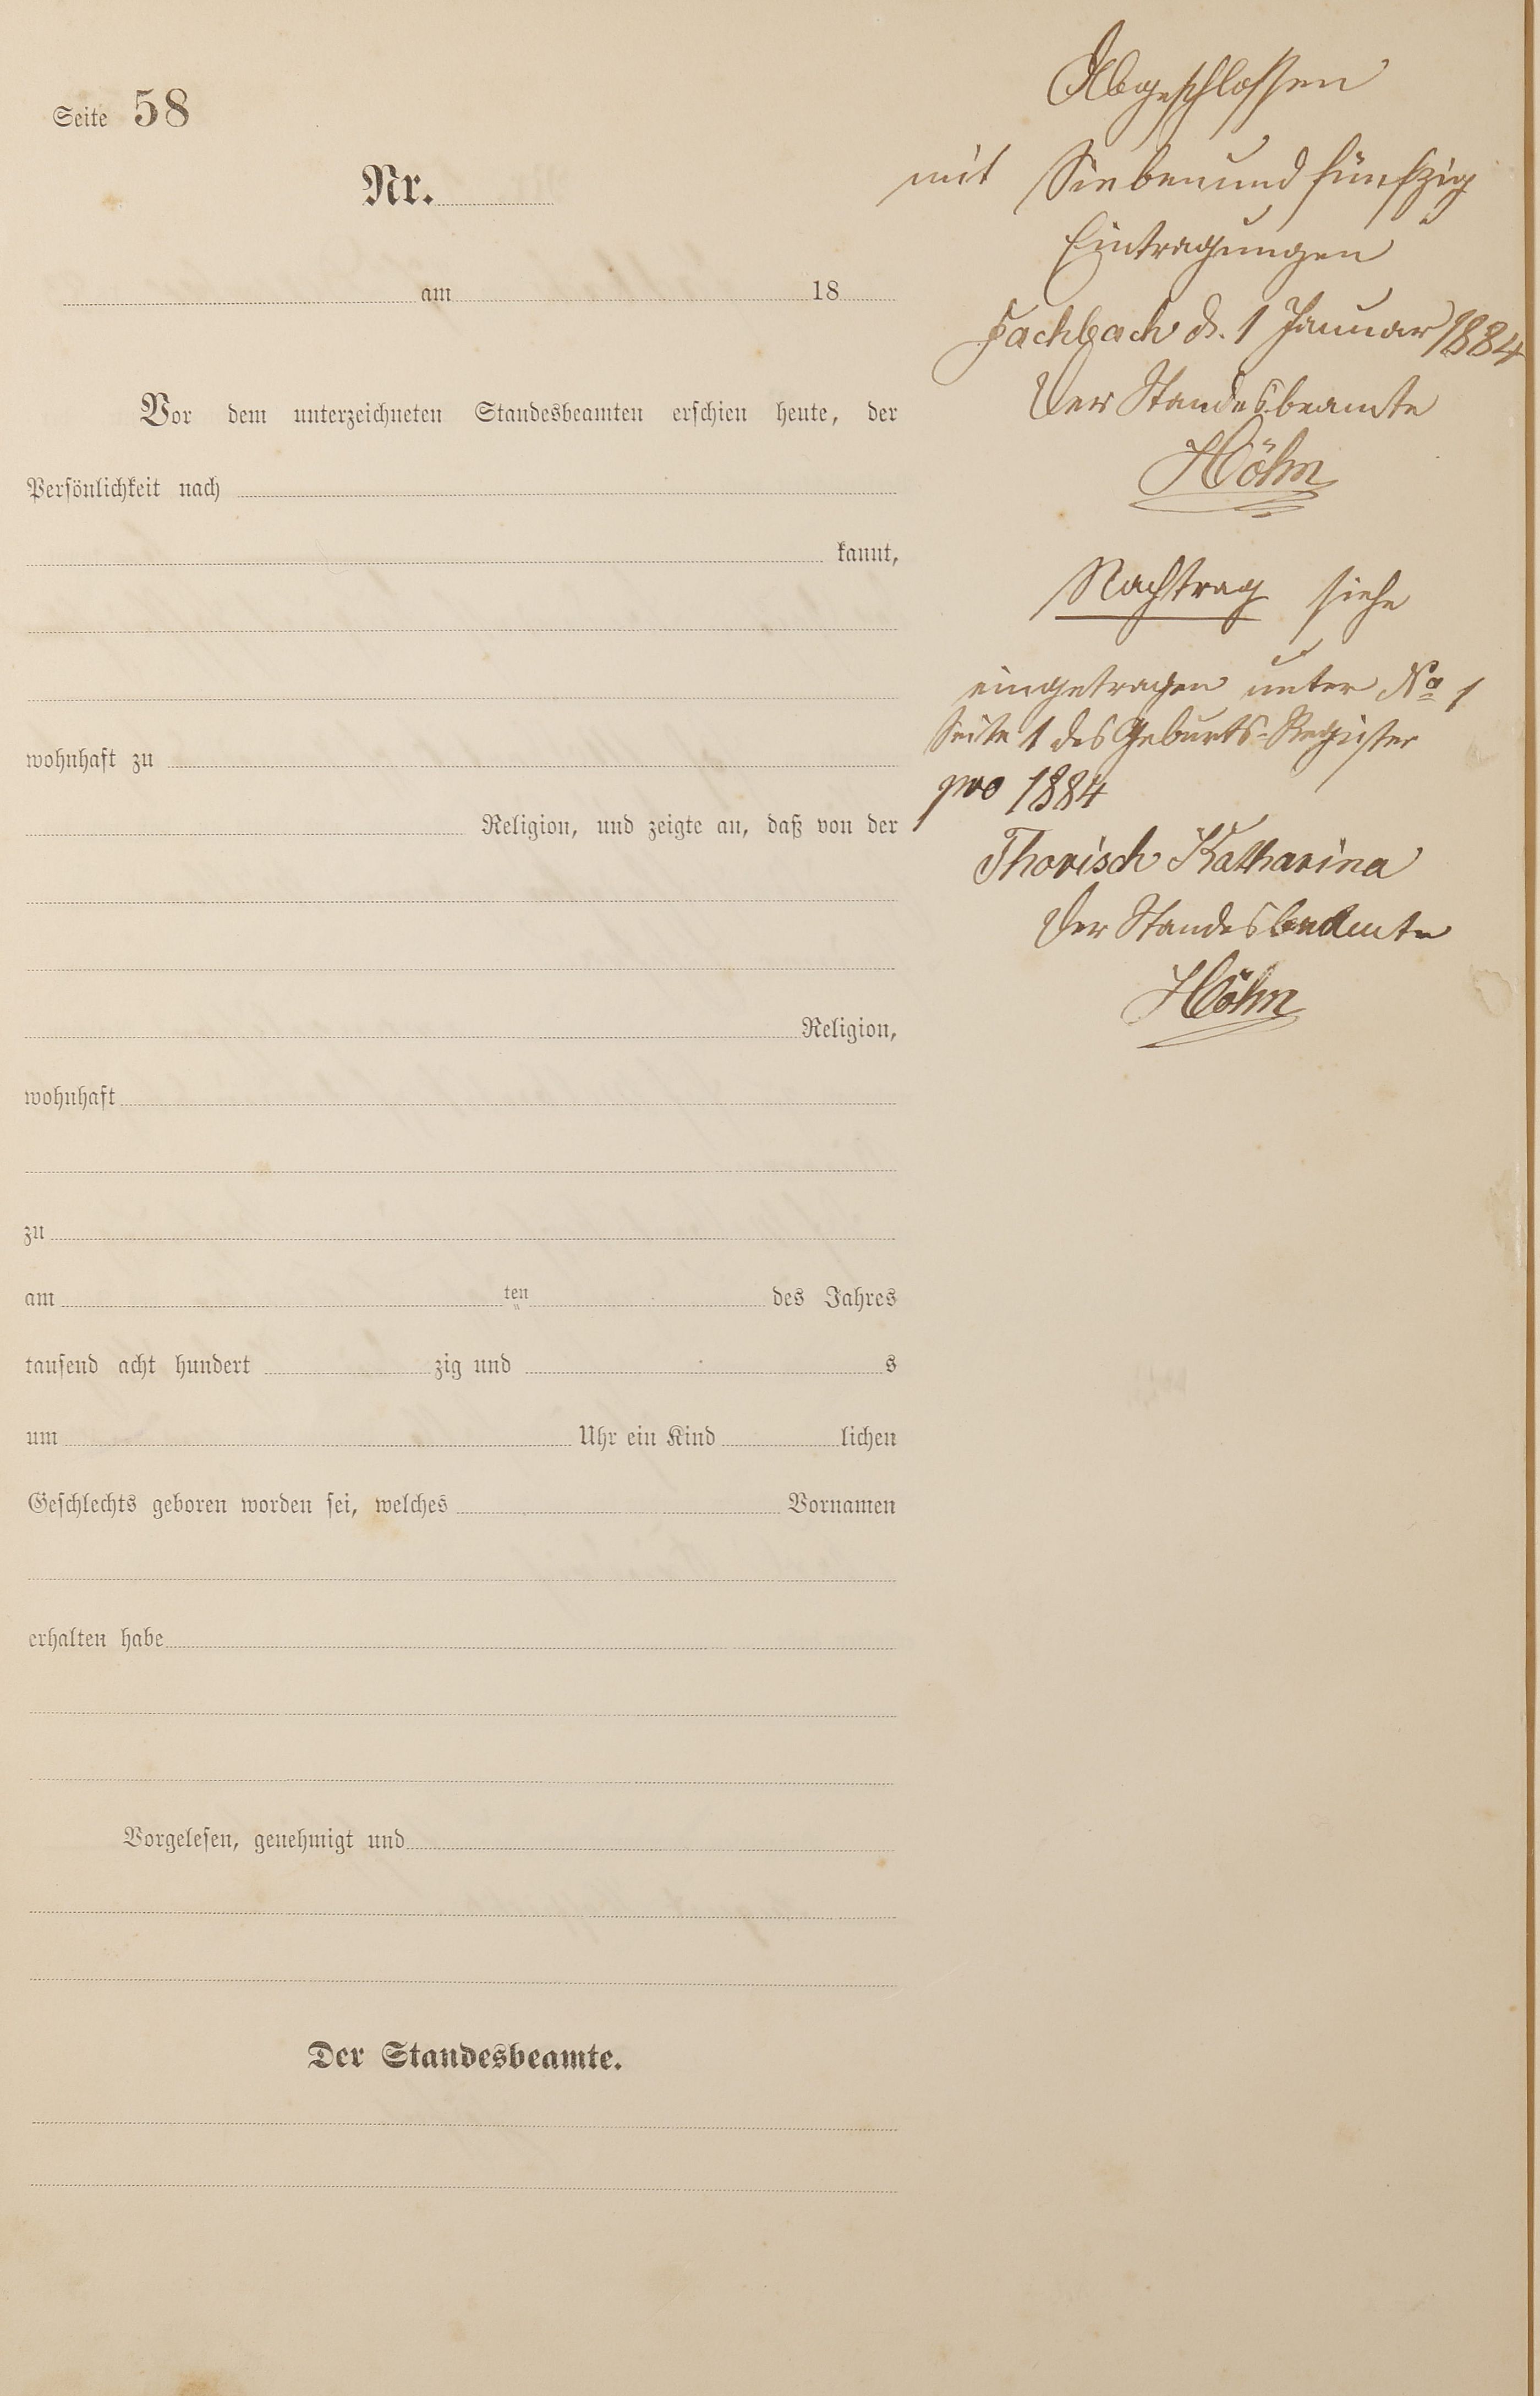 Seite 58
Nr.
am 18
Vor dem unterzeichneten Standesbeamten erschien heute, der
Persönlichkeit nach
kannt,
wohnhaft zu
Religion, und zeigte an, daß von der
Religion,
wohnhaft
zu
am ten des Jahres
tausend acht hundert zig und s
um Uhr ein Kind lichen
Geschlechts geboren worden sei, welches Vornamen
erhalten habe
Vorgelesen, genehmigt und
Der Standesbeamte.
Abgeschlossen
mit Siebenundfünfzig
Eintragungen
Fachbach d. 1 Januar 1884
Der Standesbeamte
Höhn
Nachtrag siehe
eingetragen unter No 1
Seite 1 des Geburts-Register
pro 1884
Thorisch Katharina
Der Standesbeamte
Höhn